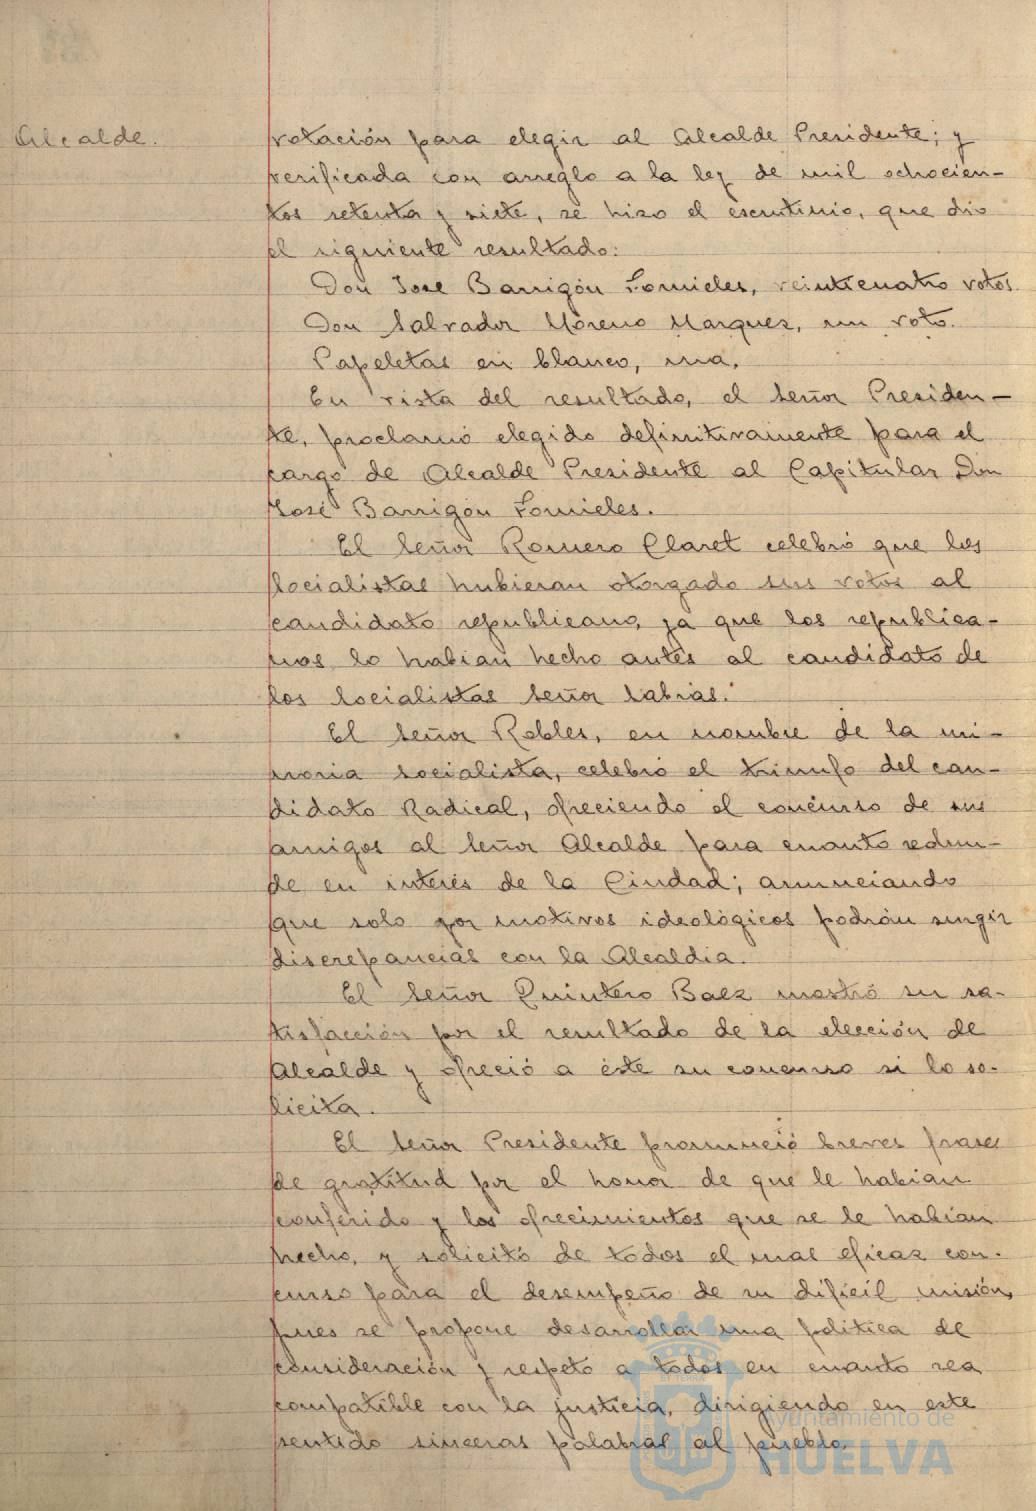 Alcalde.
votación para elegir al Alcalde Presidente; y
verificada con arreglo a la ley de mil ochocien-
tos setenta y siete, se hizo el escrutinio, que dio
el siguiente resultado:
Don José Barrigón Fornieles, veinticuatro votos.
Don Salvador Moreno Marquez, un voto.
Papeletas en blanco, una.
En vista del resultado, el Señor Presiden-
te, proclamó elegido definitivamente para el
cargo de Alcalde Presidente al Capitular Don
José Barrigón Fornieles.
El Señor Romero Claret celebró que los
Socialistas hubieran otorgado sus votos al
candidato republicano, ya que los republica-
nos lo habian hecho antes al candidato de
los Socialistas Señor Sabras.
El Señor Robles, en nombre de la mi-
noria socialista, celebró el triunfo del can-
didato Radical, ofreciendo el concurso de sus
amigos al Señor Alcalde para cuanto redun-
de en interés de la Ciudad; anunciando
que solo por motivos ideológicos podrán surgir
discrepancias con la Alcaldia.
El Señor Quintero Baez mostró su sa-
tisfacción por el resultado de la elección de
Alcalde y ofreció a éste su concurso si lo so-
licita.
El Señor Presidente pronunció breves frases
de gratitud por el honor de que le habian
conferido y los ofrecimientos que se le habian
hecho, y solicitó de todos el mas eficaz con-
curso para el desempeño de su dificil misión,
pues se propone desarrollar una politica de
consideración y respeto a todos en cuanto sea
compatible con la justicia, dirigiendo en este
sentido sinceras palabras al pueblo.
Ayuntamiento de
HUELVA